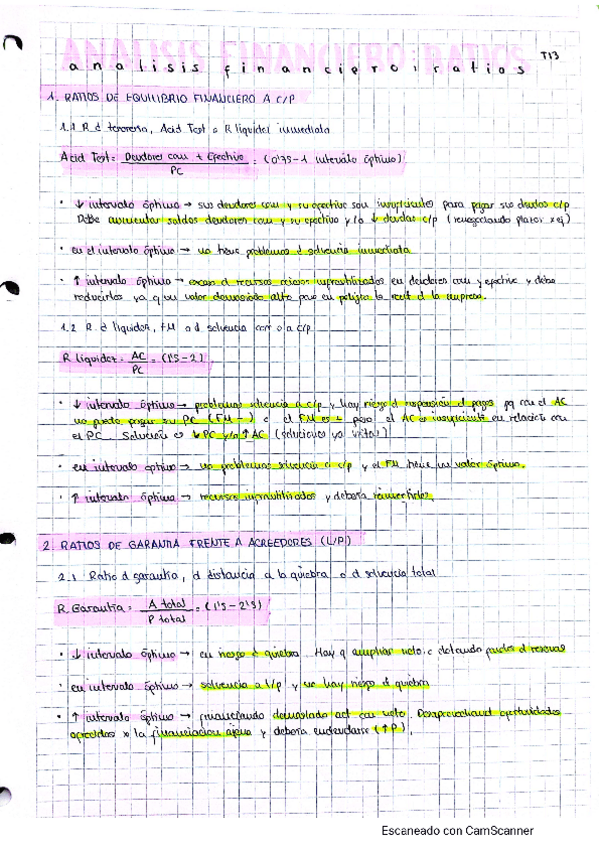 ANALISIS FINANCIERO: RATIOS
analisis financiero: ratios T13
1. RATIOS DE EQUILIBRIO FINANCIERO A C/P
1.1 R. d tesorería, Acid Test o R liquidez inmediata
Acid Test = Deudores com + Efectivo / PC = (0'75-1 intervalo óptimo)
· ↓ intervalo óptimo → sus deudores com y su efectivo son insuficientes para pagar sus deudas c/p
Debe aumentar saldos deudores com y su efectivo y/o ↓ deudas c/p (renegociando plazos x ej)
· en el intervalo óptimo → no tiene problemas d solvencia inmediata
· ↑ intervalo óptimo → exceso d recursos infrautilizados en deudores com y efectivo y debe
reducirlos ya q un valor demasiado alto pone en peligro la de la empresa.
1.2 R. d liquidez, FM o d solvencia corr o a c/p
R liquidez = AC / PC = (1'5-2)
· ↓ intervalo óptimo → problemas solvencia a c/p y hay riesgo d suspensión d pagos pq con el AC
no puede pagar su PC (FM -) o el FM es + pero el AC es insuficiente en relación con
el PC. Solución es ↓ PC y/o ↑ AC (soluciones ya vistas)
· en intervalo óptimo → no problemas solvencia a c/p y el FM tiene un valor óptimo.
· ↑ intervalo óptimo → recursos infrautilizados y debería reinvertirlos.
2. RATIOS DE GARANTIA FRENTE A ACREEDORES (L/P)
2.1 Ratio d garantía, d distancia a la quiebra o d solvencia total
R. Garantía = A total / P total = (1'5-2'5)
· ↓ intervalo óptimo → en riesgo d quiebra. Hay q ampliar neto dotando d reservas
· en intervalo óptimo → solvencia a l/p y no hay riesgo d quiebra
· ↑ intervalo óptimo → financiando demasiado act con neto. Desaprovechand oportunidades
ofrecidas x la financiación ajena y debería endeudarse (↑P).
Escaneado con CamScanner